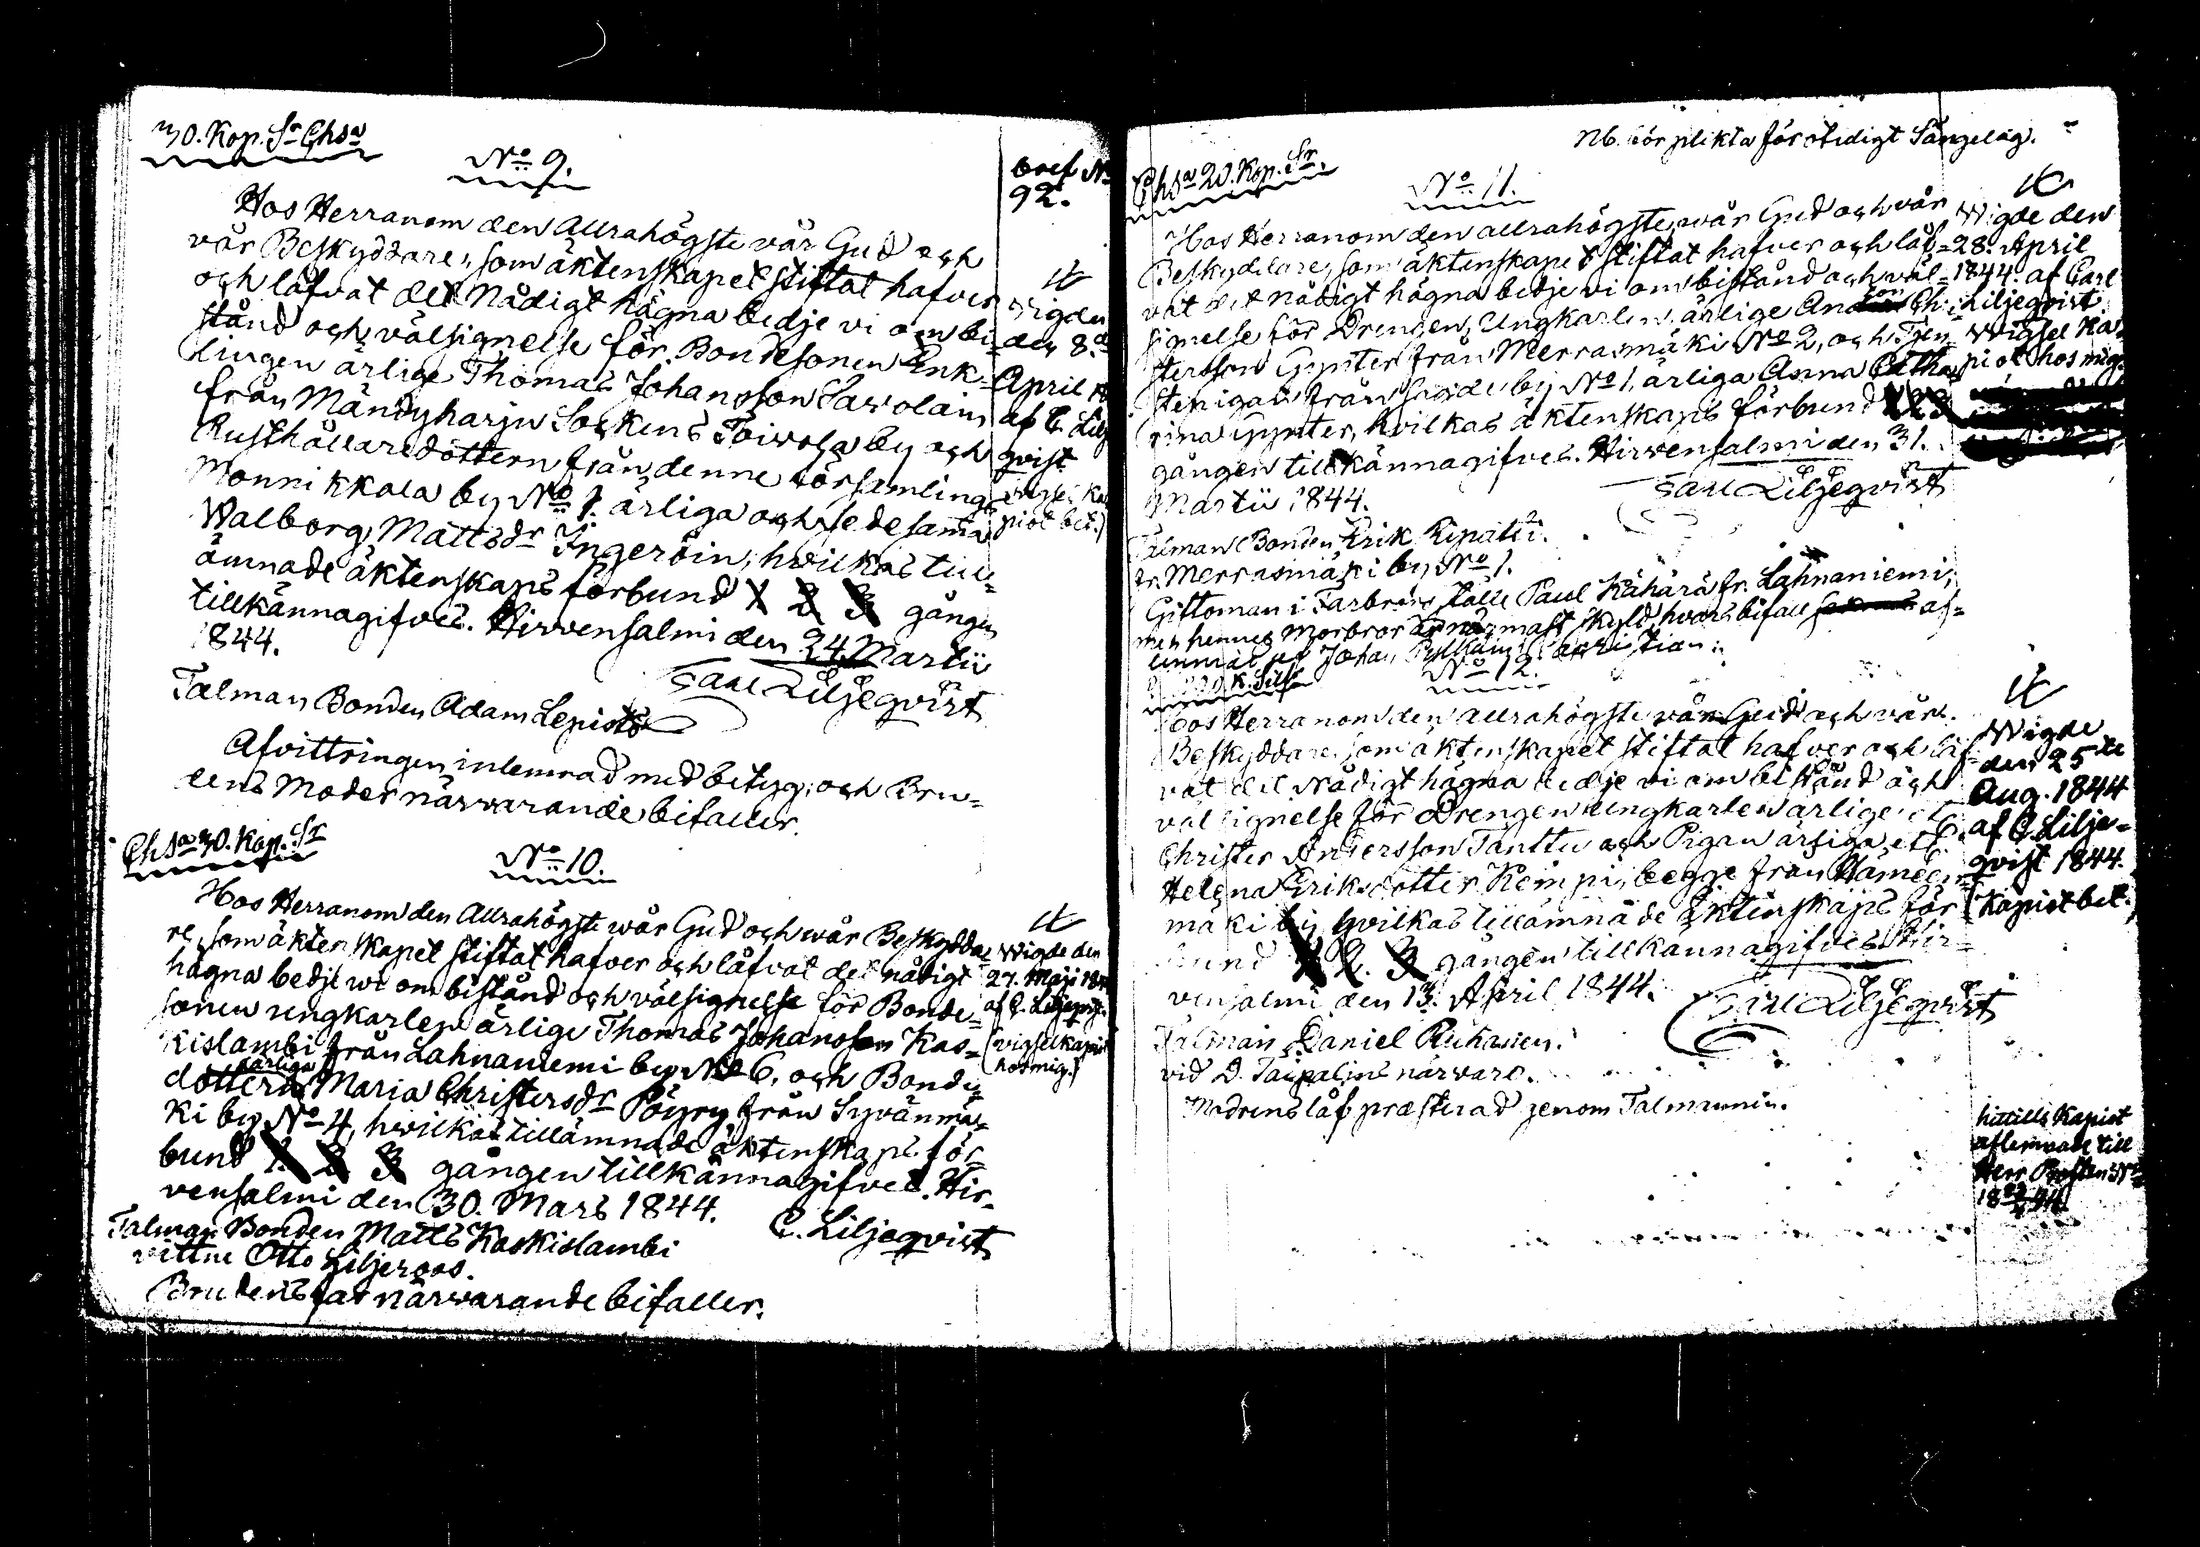 30. Kop. Sr Chsa
No 9.
Hos Herranom den Allrahögste vår Gud och
vår Beskyddare, som äktenskapet stiftat hafver
och låfvat det Nådigt hägna bedje vi om bi-
stånd och välsignelse för Bondesonen Enk-
lingen ärlige Thomas Johansson Sawolain
från Mändyharju Sockens Toivola by och
Rusthållaredottern från denne församling
Monnikkala by No 1. ärliga och sedesama
Walborg Mattsdr Ingeröin, hvilkas till-
ämnade äktenskaps förbund 1 2 3 gången
tillkännagifves. Hirvensalmi den 24 Martii
1844.
Carl Liljeqvist
Talman Bonden Adam Lepistö
Afvittringen inlemnad med betyg, och Bru-
dens Moder närvarande bifaller.
92.
Wigde
den 8.de
April
af C. Lilje
qvist
Chsa 30. Kop. Sr
No 10.
Hos Herranom den Allrahögste wår Gud och wår Beskydda
re, som äktenskapet stiftat hafver och låfvat det nådigt
hägna bedje wi om bistånd och välsignelse för Bonde-
sonen ungkarlen ärlige Thomas Johansson Kas-
kislambi från Lahnaniemi by No 6, och Bonde
dottern ärliga Maria Christersdr Pöyry från Syvänmä-
ki by No 4, hvilkas tillämnade äktenskaps för-
bund 1 2 3 gången tillkännagifves. Hir-
vensalmi den 30. Mars 1844.
C. Liljeqvist
Talman Bonden Matts Kaskislambi
vittne Otto Liljeroos.
Brudens far närvarande bifaller.
Wigde den
27. Maji
af C. Liljeqv.
(vigselkapiot
hos mig.)
Nb. bör plikta för otidigt Sängelag.
Chsa 20. Kop. Sr.
No 11.
Hos Herranom den allrahögste wår Gud och vår
Beskyddare, som äktenskapet stiftat hafver och låf-
vat det nådigt hägna bedje vi om bistånd och väl-
signelse för Drengen, Ungkarlen ärlige
stersson Gynter från Merrasmäki No 2, och Tjen-
stepigan från by No 1, ärliga Anna Catha
rina Gynter, hvilkas äktenskaps förbund 1 2 3
gången tillkännagifves. Hirvensalmi den 31.
Martii 1844.
Carl Liljeqvist
Talman Bonden Erik Ripatti.
fr. Merrasmäki by No 1.
Giftoman i Farbrors ställe Paul Kähärä fr. Lahnaniemi,
men hennes Morbror är närmast skyld, hvars bifall af-
Wigde den
28. April
1844. af Carl
Liljeqvist
Wigsel Ka-
piot hos mig.
No 12.
Hos Herranom den Allrahögste vår Gud och vår
Beskyddare som äktenskapet stiftat hafver och låf-
vat det Nådigt hägna bedje vi om bistånd och
välsignelse för Drengen Ungkarlen ärlige
Christer Andersson Tanttu och Pigan ärliga
Helena Eriksdotter Kempi, begge från Hämeen-
mäki by hvilkas tillämnade äktenskaps för
bund 1 2. 3 gången tillkännagifves Hir-
vensalmi den 13. April 1844.
Carl Liljeqvist
Talman Daniel Riihonen.
vid D. Taipalins närvaro.
Modrens låf præsterad genom Talmannen.
Wigde
den 25te
Aug. 1844
af C. Lilje-
qvist 1844.
(Kapiot bet.)
hittills Kapiot
aflemnade till
Herr Prosten